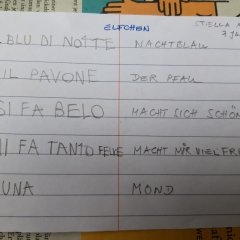 ELFCHEN
STELLA
BLU DI NOTTE NACHTBLAU
IL PAVONE DER PFAU
SI FA BELO MACHT SICH SCHÖN
MI FA TANTO FELICE MACHT MIR VIEL FREU
LUNA MOND